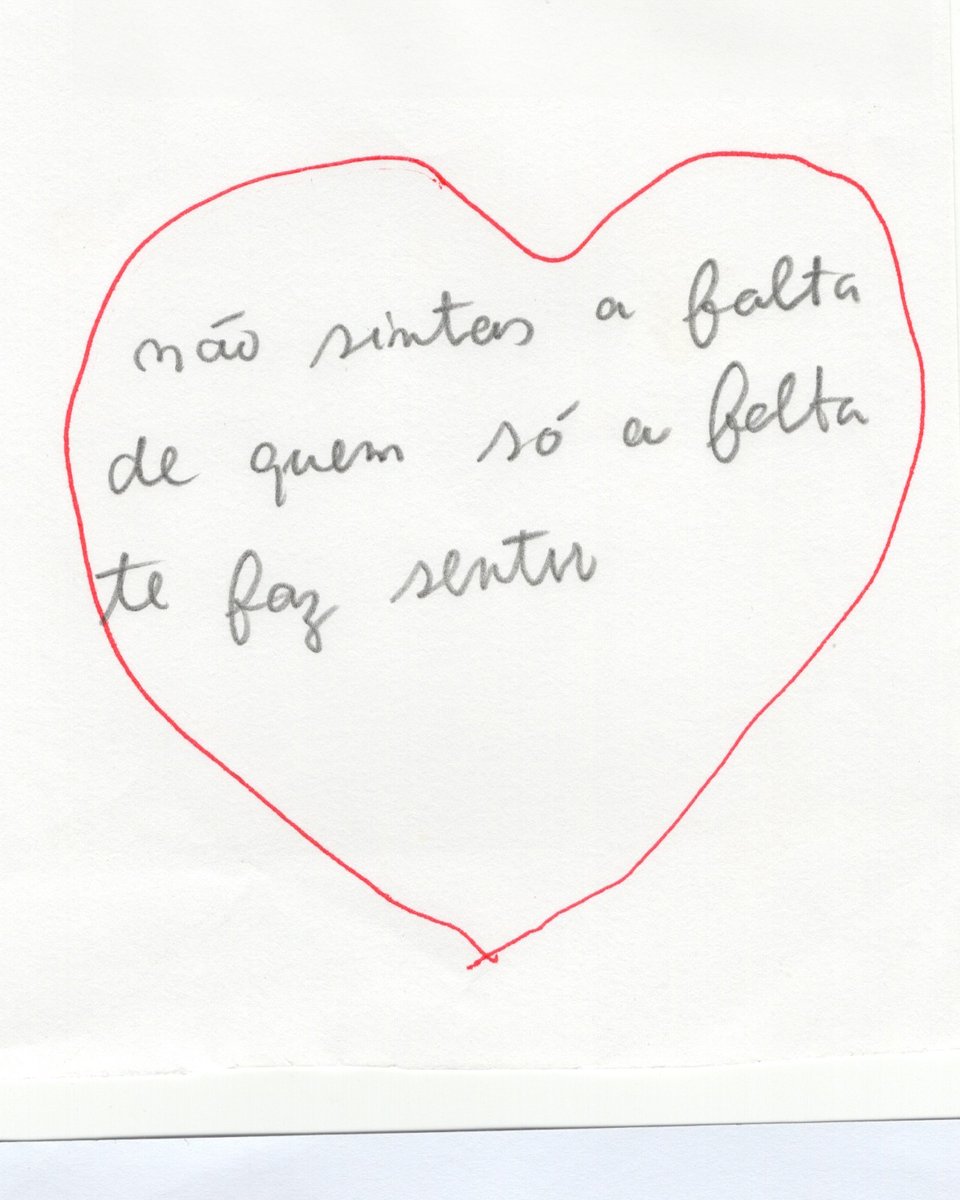 não sintas a falta
de quem só a falta
te faz sentir